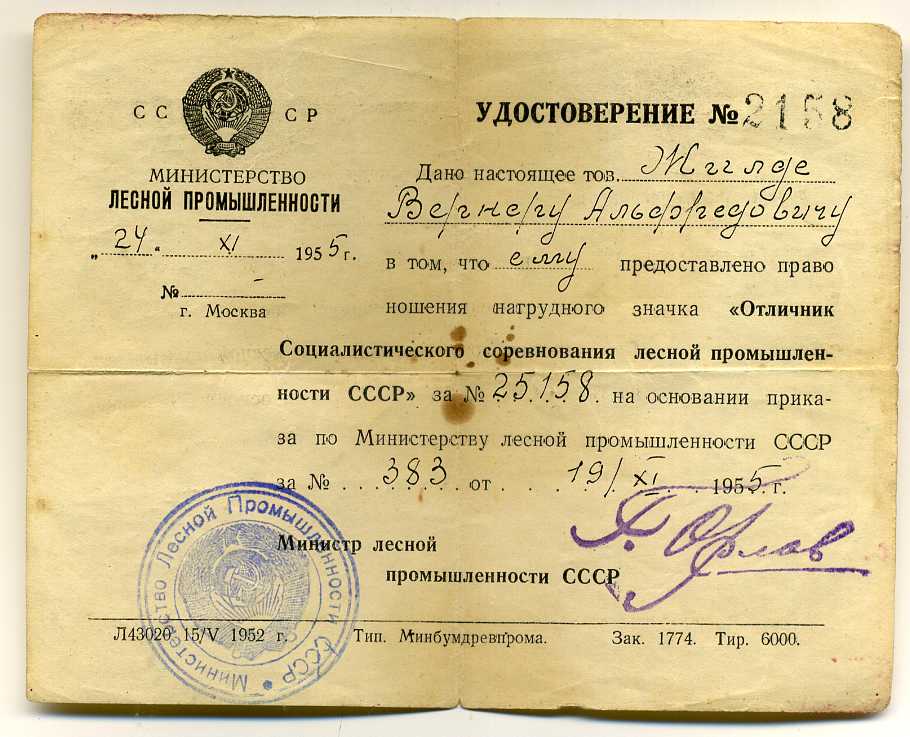 СС СР
МИНИСТЕРСТВО
ЛЕСНОЙ ПРОМЫШЛЕННОСТИ
„24" XI 1955 г.
№ -
г. Москва
УДОСТОВЕРЕНИЕ № 2158
Дано настоящее тов. Жиглде
Вернеру Альфредовичу
в том, что ему предоставлено право
ношения нагрудного значка «Отличник
Социалистического соревнования лесной промышлен-
ности СССР» за № 25158 на основании прика-
за по Министерству лесной промышленности СССР
за № 383 от 19/XI 1955 г.
Министр лесной
промышленности СССР
Г. Орлов
Министерство Лесной Промышленности СССР
Л43020 15/V 1952 г. Тип. Минбумдревпрома. Зак. 1774. Тир. 6000.